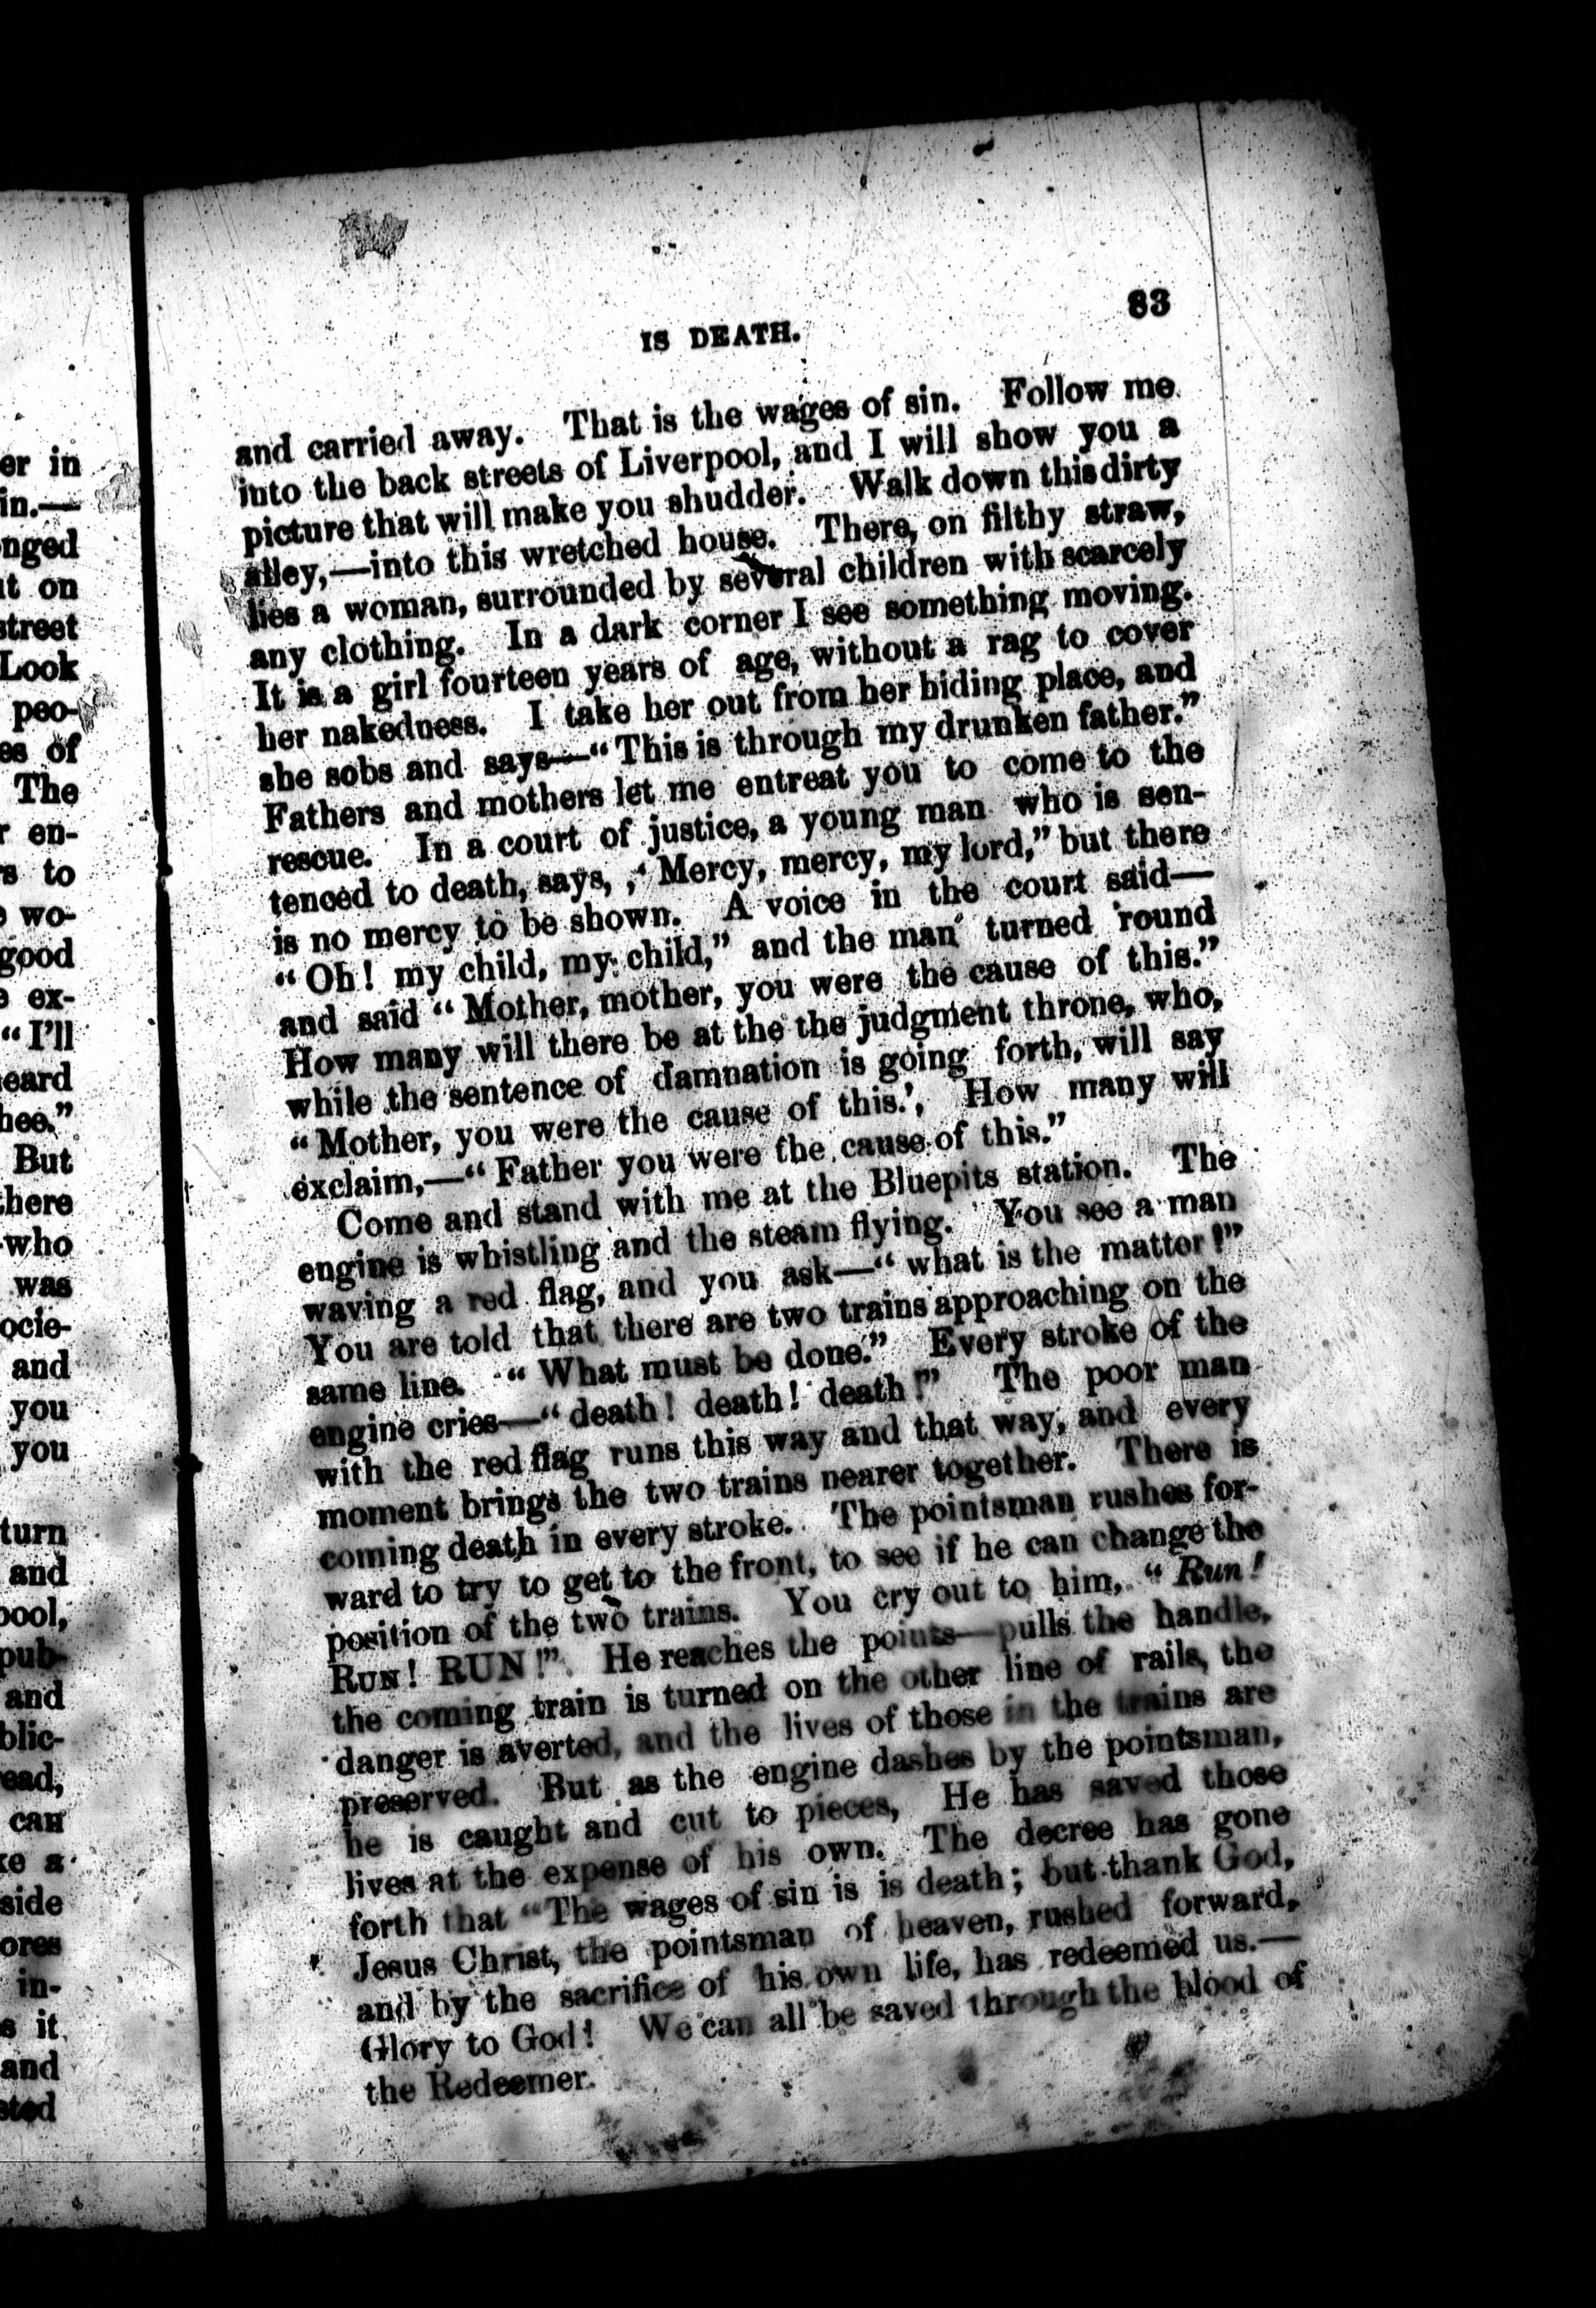 er in
in.—
nged
t on
street
Look
peo-
es of
The
r en-
rs to
wo-
good
e ex-
"I'll
eard
hee."
But
here
who
was
ocie-
and
you
you
turn
and
pool,
pub-
and
blic-
ead,
can
ke a
side
ores
in-
s it
and
sted
83
IS DEATH.
and carried away. That is the wages of sin. Follow me
into the back streets of Liverpool, and I will show you a
picture that will make you shudder. Walk down this dirty
alley,—into this wretched house. There, on filthy straw,
lies a woman, surrounded by several children with scarcely
any clothing. In a dark corner I see something moving.
It is a girl fourteen years of age, without a rag to cover
her nakedness. I take her out from her hiding place, and
she sobs and says—"This is through my drunken father."
Fathers and mothers let me entreat you to come to the
rescue. In a court of justice, a young man who is sen-
tenced to death, says, ,' Mercy, mercy, my lord," but there
is no mercy to be shown. A voice in the court said—
"Oh! my child, my child," and the man turned 'round
and said "Mother, mother, you were the cause of this."
How many will there be at the the judgment throne, who,
while the sentence of damnation is going forth, will say
"Mother, you were the cause of this.', How many will
exclaim,—"Father you were the cause of this."
Come and stand with me at the Bluepits station. The
engine is whistling and the steam flying. You see a man
waving a red flag, and you ask—"what is the matter!"
You are told that there are two trains approaching on the
same line. "What must be done." Every stroke of the
engine cries—"death! death! death!" The poor man
with the red flag runs this way and that way, and every
moment brings the two trains nearer together. There is
coming death in every stroke. The pointsman rushes for-
ward to try to get to the front, to see if he can change the
position of the two trains. You cry out to him, "Run!
RUN! RUN!" He reaches the points—pulls the handle,
the coming train is turned on the other line of rails, the
danger is averted, and the lives of those in the trains are
preserved. But as the engine dashes by the pointsman,
he is caught and cut to pieces, He has saved those
lives at the expense of his own. The decree has gone
forth that "The wages of sin is is death; but thank God,
Jesus Christ, the pointsman of heaven, rushed forward,
and by the sacrifice of his own life, has redeemed us.—
Glory to God! We can all be saved through the blood of
the Redeemer.